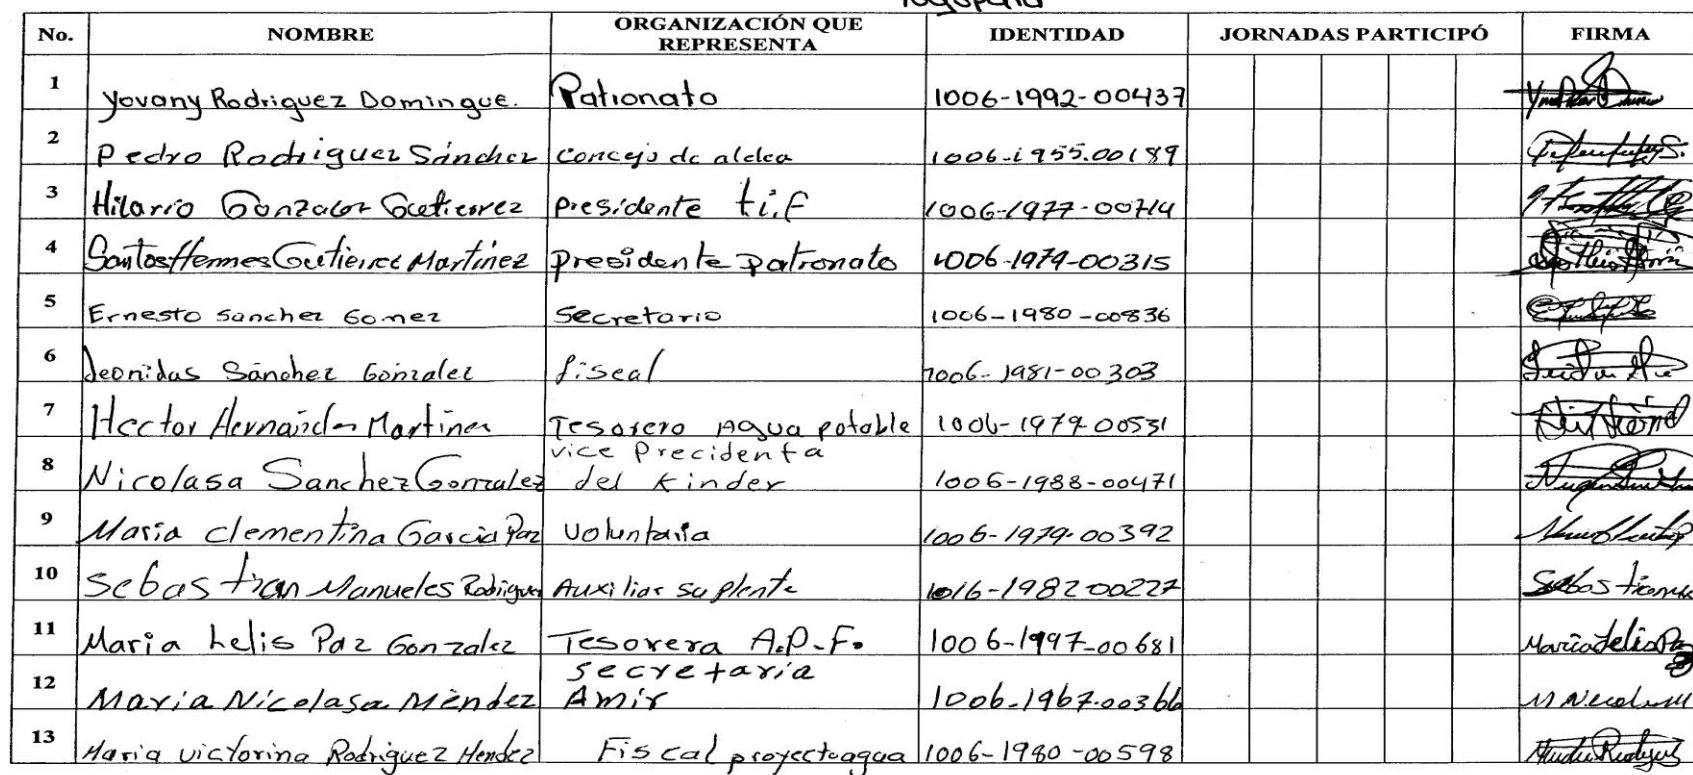 No. NOMBRE ORGANIZACIÓN QUE REPRESENTA IDENTIDAD JORNADAS PARTICIPÓ FIRMA
1 Yovany Rodriguez Domingue. Patronato 1006-1992-00437
2 Pedro Rodriguez Sánchez concejo de aldea 1006-1955.00189
3 Hilario Gonzalez Gutierrez presidente t.i.f 1006-1977-00714
4 Santos Hermes Gutierrez Martinez presidente patronato 1006-1979-00315
5 Ernesto sanchez Gomez secretario 1006-1980-00836
6 Leonidas Sánchez Gonzalez fiscal 1006-1981-00303
7 Hector Hernández Martinez Tesorero Agua potable 1006-1979-00531
8 Nicolasa Sanchez Gonzalez vice Precidenta del Kinder 1006-1988-00471
9 Maria Clementina Garcia Paz Voluntaria 1006-1979-00392
10 Sebastian Manueles Rodriguez Auxiliar suplente 1016-1982-00227
11 Maria Lelis Paz Gonzalez Tesorera A.P.F. 1006-1997-00681 Maria Lelis Paz
12 Maria Nicolasa Méndez secretaria Amir 1006-1967-00366
13 Maria victorina Rodriguez Mendez Fiscal proyecto agua 1006-1980-00598